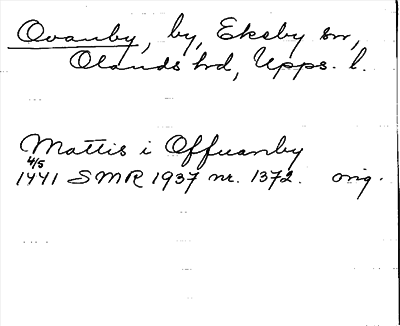 Ovanby, by, Ekeby sn,
Olands hd, Upps. l.
Mattis i Offuanby
4/5
1441 SMR 1937 nr. 1372. orig.